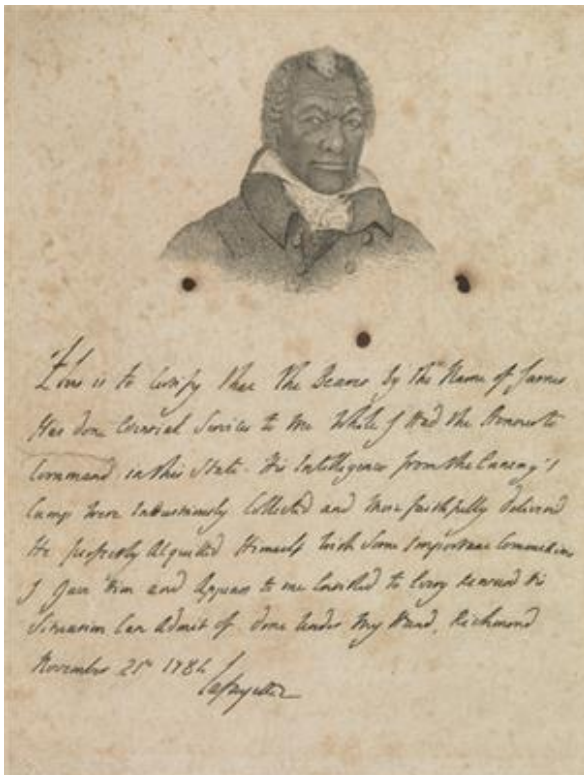 This is to Certify that the Bearer By the Name of James
Has done Essential Services to Me While I Had the Honour to
Command in this State. His Intelligences from the Enemy's
Camp were Industriously Collected and More faithfully deliver'd
He properly Acquitted Himself with Some Important Commissions
I Gave Him and Appears to me Entitled to Every Reward his
Situation Can Admit of. Done Under My Hand, Richmond
November 21st 1784
Lafayette